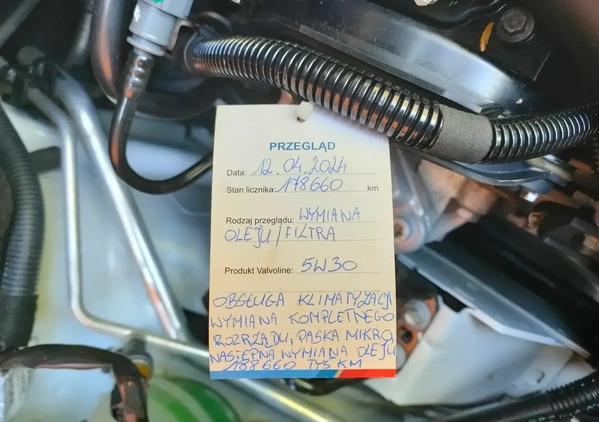 PRZEGLĄD
Data: 12.04.2024
Stan licznika: 178660 km
Rodzaj przeglądu: WYMIANA
OLEJU / FILTRA
Produkt Valvoline: 5W30
OBSŁUGA KLIMATYZACJI
WYMIANA KOMPLETNEGO
ROZRZĄDU, PASKA MIKRO
NASTĘPNA WYMIANA OLEJU
188660 TYS KM